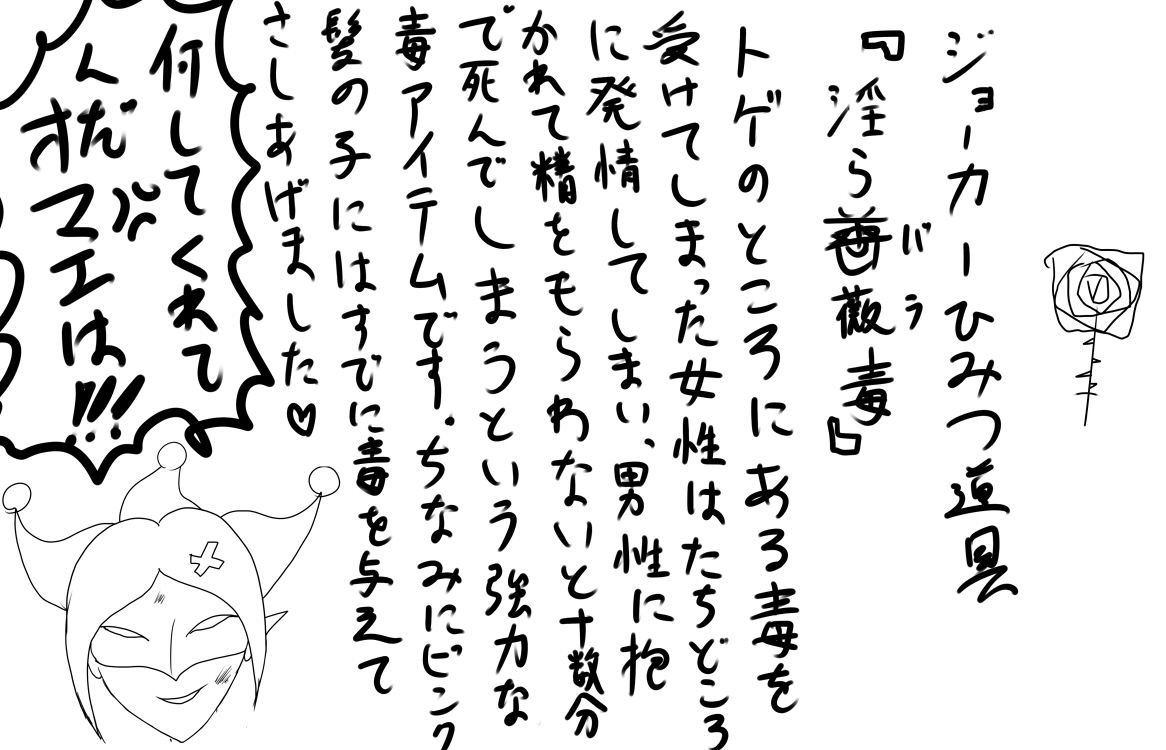 ジョーカーひみつ道具
『淫ら薔薇毒』
バラ
トゲのところにある毒を
受けてしまった女性はたちどころ
に発情してしまい、男性に抱
かれて精をもらわないと十数分
で死んでしまうという強力な
毒アイテムです。ちなみにピンク
髪の子にはすでに毒を与えて
さしあげました♡
何してくれて
んすだマエは!!!